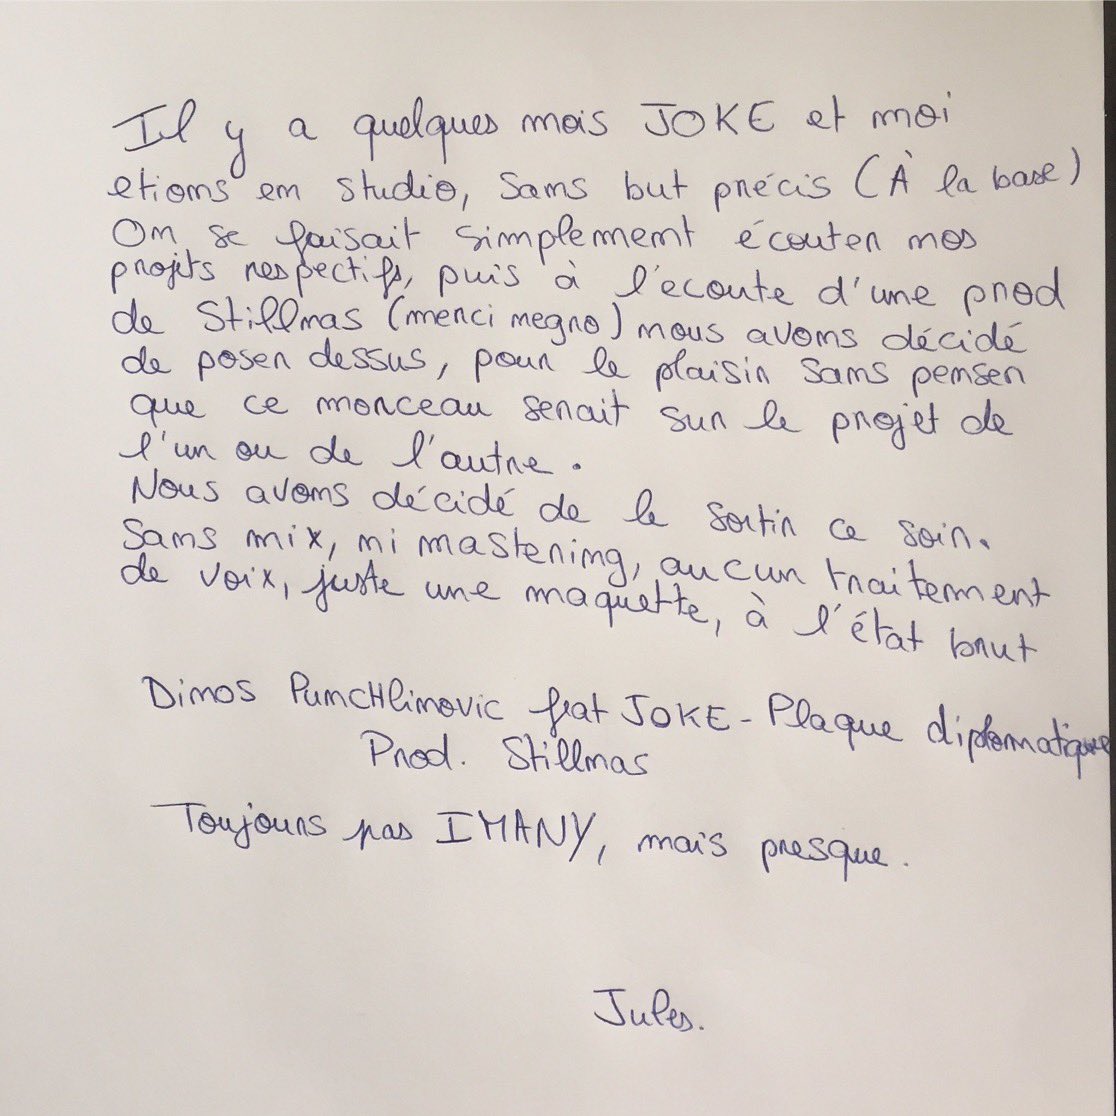 Il y a quelques mois JOKE et moi
etions en studio, sans but précis (À la base)
On se faisait simplement écouter nos
projets respectifs, puis à l'écoute d'une prod
de Stillmas (merci negro) nous avons décidé
de poser dessus, pour le plaisir sans penser
que ce morceau serait sur le projet de
l'un ou de l'autre.
Nous avons décidé de le sortir ce soir.
Sans mix, ni mastering, aucun traitement
de voix, juste une maquette, à l'état brut
Dinos PuncHlinovic feat JOKE - Plaque diplomatique
Prod. Stillmas
Toujours pas IMANY, mais presque.
Jules.